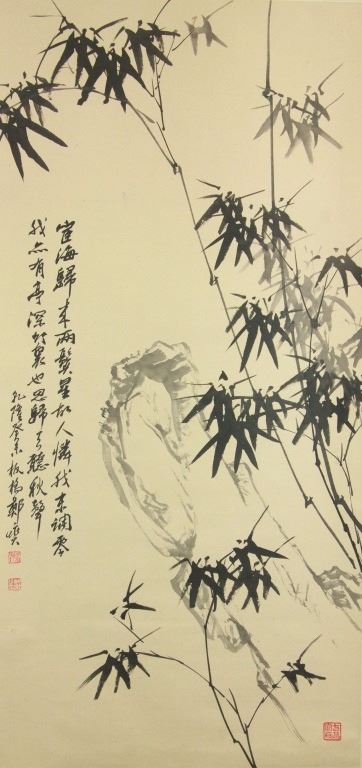 宦海歸来兩鬢星故人憐我未凋零
我亦有亭深竹裏也思歸去聽秋聲
乾隆癸未板橋鄭燮